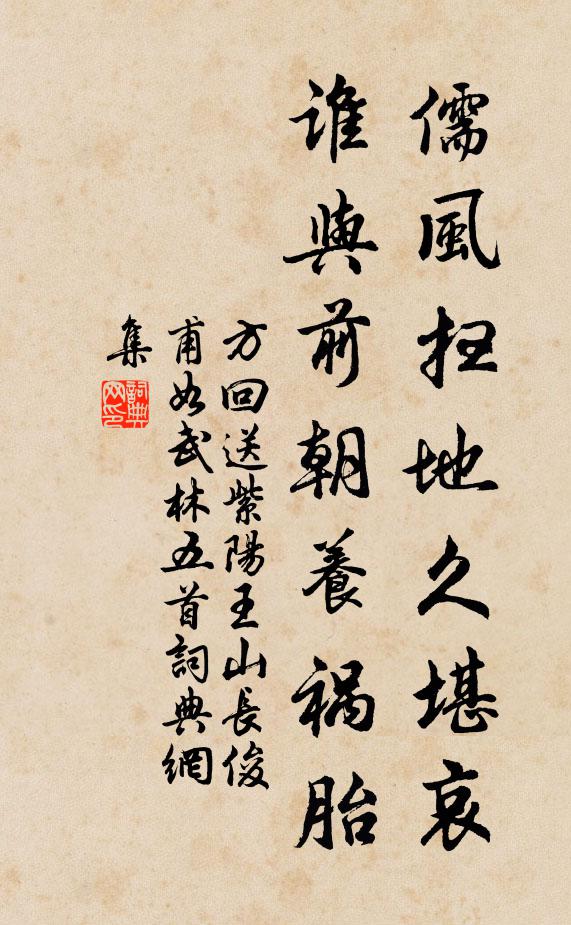 儒風扫地久堪哀
誰與前朝養禍胎
方回送紫陽王山長俊
甫如武林五首詞典網
集
詞典
网印